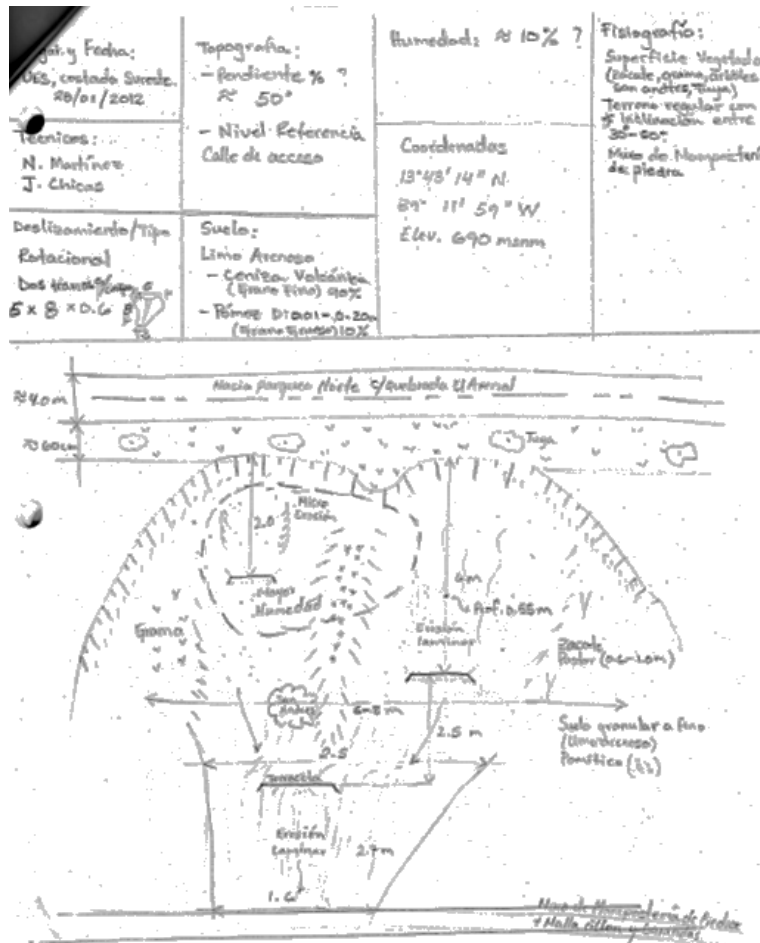 y Fecha:
UES, costado Sureste.
28/01/2012
Técnicos:
N. Martínez
J. Chicas
Deslizamiento/Tipo
Rotacional
Dos
5 x 8 x 0.6
Topografía:
- Pendiente % ?
≈ 50°
- Nivel Referencia
Calle de acceso
Suelo:
Limo Arenoso
- Ceniza Volcánica
(Grano Fino) 90%
- Pómez D:0.01-0.20m
(Grano Grueso) 10%
Humedad: ≈ 10% ?
Coordenadas
13°43' 14" N
89° 11' 59" W
Elev. 690 msnm
Fisiografía:
Superficie Vegetada
(zacate, grama, árboles
san andres, tuya)
Terreno regular con
inclinación entre
30°-60°
Muro de Mampostería
de piedra
Hacia parqueo Norte c/quebrada El Arenal
≈ 4.0 m
≈ 60 cm
Tuya
Micro
Erosión
2.0
Mayor
Humedad
4 m
0.55 m
Erosión
Laminar
Grama
Zacate
(0.6-1.0m)
San
Andres
6-8 m
2.5 m
Suelo granular a fino
(Limo arenoso)
Pomítico
2.5
Erosión
Laminar
2.7 m
1.6
Muro de Mampostería de Piedra
+ Malla